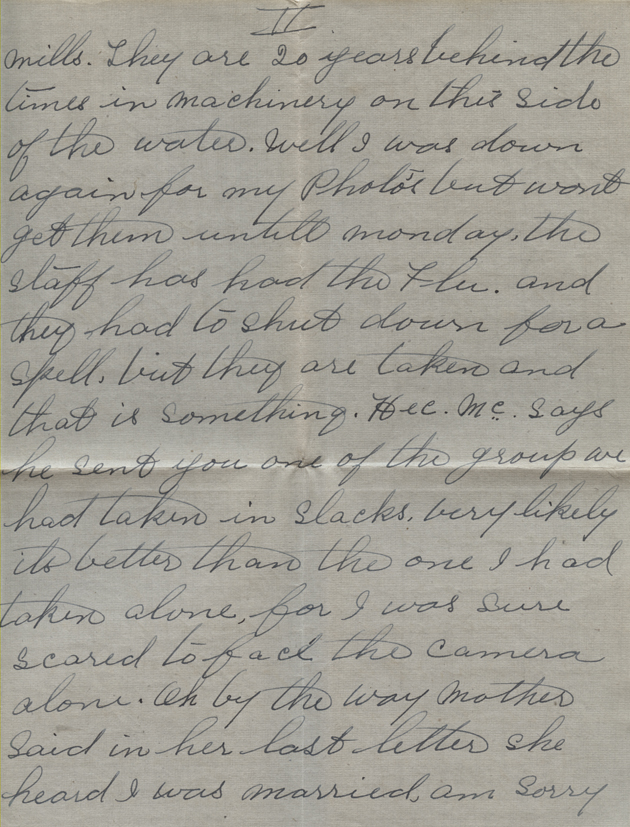 II
mills. They are 20 years behind the
times in machinery on this side
of the water. Well I was down
again for my Photo's but wont
get them untill monday, the
staff has had the Flu. and
they had to shut down for a
spell, but they are taken and
that is something. Hec. Mc. says
he sent you one of the group we
had taken in slacks, very likely
its better than the one I had
taken alone, for I was sure
scared to face the camera
alone. Oh by the way Mother
said in her last letter she
heard I was married, am sorry